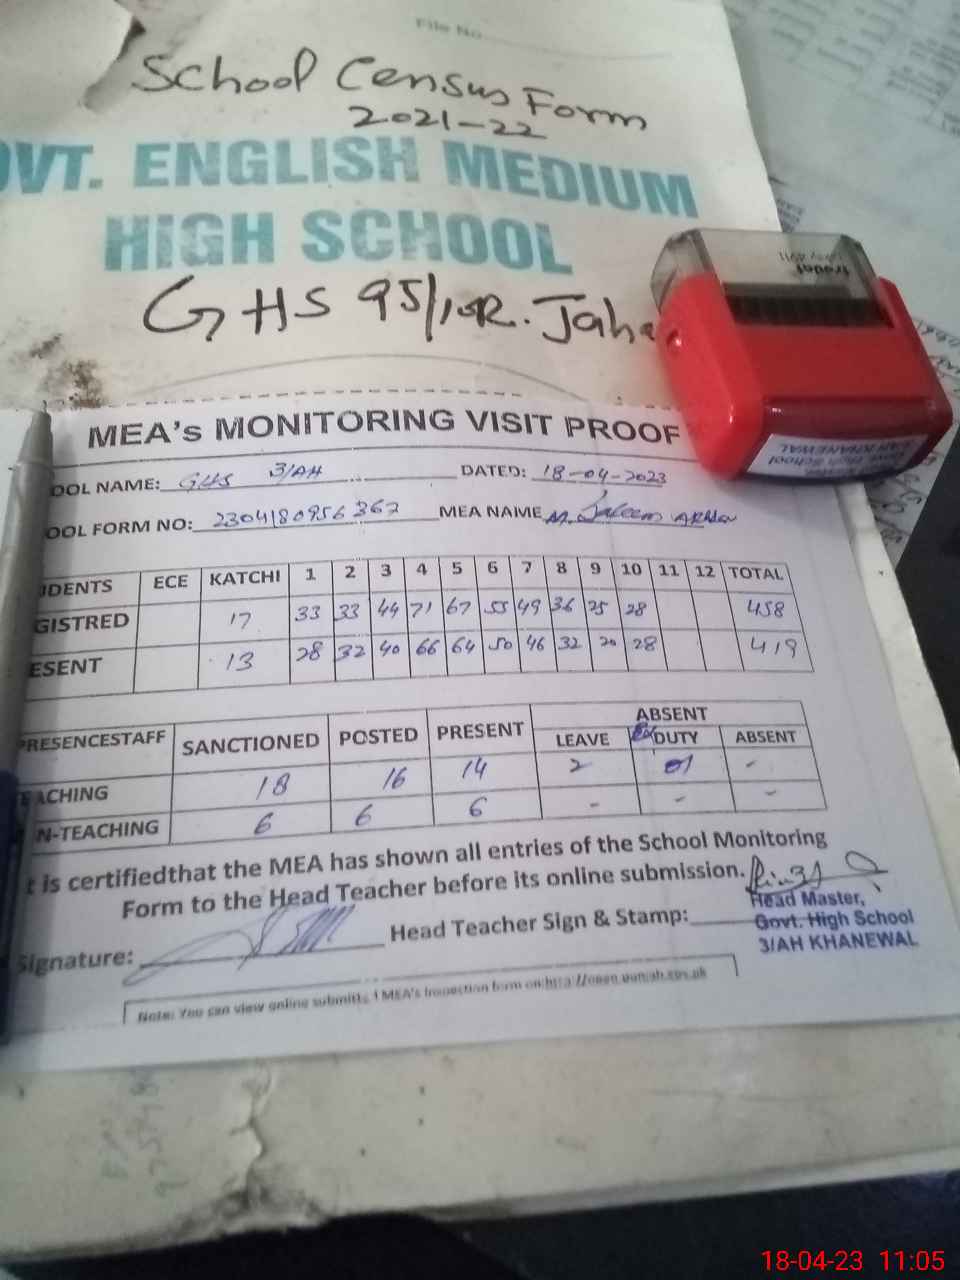 File No
School Census Form
2021-22
OVT. ENGLISH MEDIUM
HIGH SCHOOL
GHS 95/15R. Jaha
MEA's MONITORING VISIT PROOF
OOL NAME: GHS 3/AH DATED: 18-04-2023
OOL FORM NO: 2304180956367 MEA NAME M. Saleem
UDENTS ECE KATCHI 1 2 3 4 5 6 7 8 9 10 11 12 TOTAL
GISTRED 17 33 33 44 71 67 55 49 36 25 28 458
ESENT 13 28 32 40 66 64 50 46 32 20 28 419
PRESENCESTAFF SANCTIONED POSTED PRESENT ABSENT
LEAVE DUTY ABSENT
EACHING 18 16 14 2 01 -
N-TEACHING 6 6 6 - - -
t is certifiedthat the MEA has shown all entries of the School Monitoring
Form to the Head Teacher before its online submission.
Signature: Head Teacher Sign & Stamp:
Head Master,
Govt. High School
3/AH KHANEWAL
Note: You can view online submitte MEA's Inspection form on:http://open.punjab.gov.pk
trodat
High School
AH KHANEWAL
18-04-23 11:05